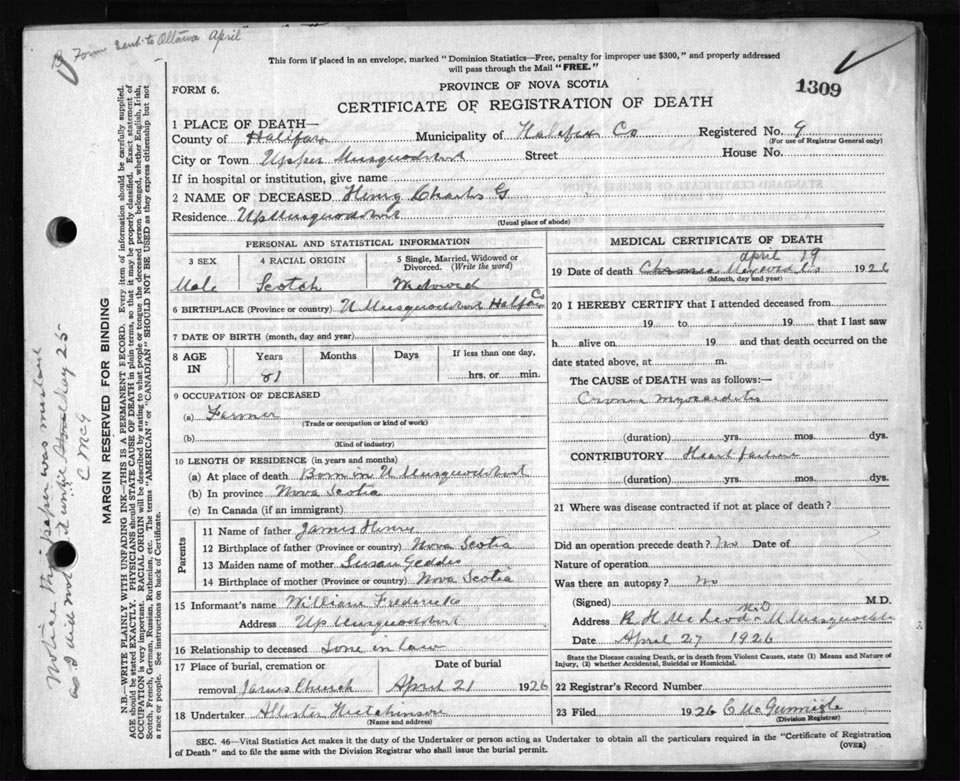 Form Sent to Ottawa April
This form if placed in an envelope, marked "Dominion Statistics—Free, penalty for improper use $300," and properly addressed
will pass through the Mail "FREE."
FORM 6.
PROVINCE OF NOVA SCOTIA
1309
CERTIFICATE OF REGISTRATION OF DEATH
1 PLACE OF DEATH—
County of Halifax Municipality of Halifax Co Registered No. 9
(For use of Registrar General only)
City or Town Upper Musquodobit Street House No.
If in hospital or institution, give name
2 NAME OF DECEASED Henry Charles G
Residence Up Musquodobit
(Usual place of abode)
PERSONAL AND STATISTICAL INFORMATION
3 SEX 4 RACIAL ORIGIN 5 Single, Married, Widowed or Divorced. (Write the word)
Male Scotch
6 BIRTHPLACE (Province or country) U Musquodobit Halifax Co
7 DATE OF BIRTH (month, day and year)
8 AGE IN Years Months Days If less than one day,
81 hrs. or min.
9 OCCUPATION OF DECEASED
(a) Farmer
(Trade or occupation or kind of work)
(b)
(Kind of industry)
10 LENGTH OF RESIDENCE (in years and months)
(a) At place of death Born in U Musquodobit
(b) In province Nova Scotia
(c) In Canada (if an immigrant)
Parents
11 Name of father James Henry
12 Birthplace of father (Province or country) Nova Scotia
13 Maiden name of mother Susan Geddes
14 Birthplace of mother (Province or country) Nova Scotia
15 Informant's name William Fredericks
Address Up Musquodobit
16 Relationship to deceased Sone in law
17 Place of burial, cremation or removal James Church
Date of burial April 21 1926
18 Undertaker Allister Hutchinson
(Name and address)
MEDICAL CERTIFICATE OF DEATH
19 Date of death April 19 1926
(Month, day and year)
20 I HEREBY CERTIFY that I attended deceased from
19 to 19 that I last saw
h alive on 19 and that death occurred on the
date stated above, at m.
The CAUSE of DEATH was as follows:—
myocarditis
(duration) yrs. mos. dys.
CONTRIBUTORY Heart failure
(duration) yrs. mos. dys.
21 Where was disease contracted if not at place of death?
Did an operation precede death? No Date of
Nature of operation
Was there an autopsy? No
(Signed) M.D.
Address R H McLeod MD U Musquodobit
Date April 27 1926
State the Disease causing Death, or in death from Violent Causes, state (1) Means and Nature of
Injury, (2) whether Accidental, Suicidal or Homicidal.
22 Registrar's Record Number
23 Filed 1926 C McGunnigle
(Division Registrar)
SEC. 46—Vital Statistics Act makes it the duty of the Undertaker or person acting as Undertaker to obtain all the particulars required in the "Certificate of Registration
of Death" and to file the same with the Division Registrar who shall issue the burial permit. (OVER)
MARGIN RESERVED FOR BINDING
N.B.—WRITE PLAINLY WITH UNFADING INK—THIS IS A PERMANENT RECORD. Every item of information should be carefully supplied.
AGE should be stated EXACTLY. PHYSICIANS should STATE CAUSE OF DEATH in plain terms, so that it may be properly classified. Exact statement of
OCCUPATION is very important. RACIAL ORIGIN will be described by stating to what people or tongue the deceased person belonged, whether English, Irish,
Scotch, French, German, Russian, Ruthenian, etc. The terms "AMERICAN" or "CANADIAN" SHOULD NOT BE USED as they express citizenship but not
a race or people. See instructions on back of Certificate.
Notice this paper was
I did not May 25
C McG